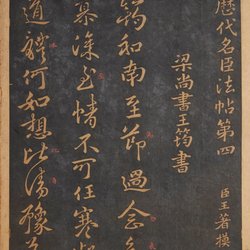 歷代名臣法帖第四
臣王著模
梁尚書王筠書
筠和南至節過念
深至情不可任寒凝
道體何如想比清豫